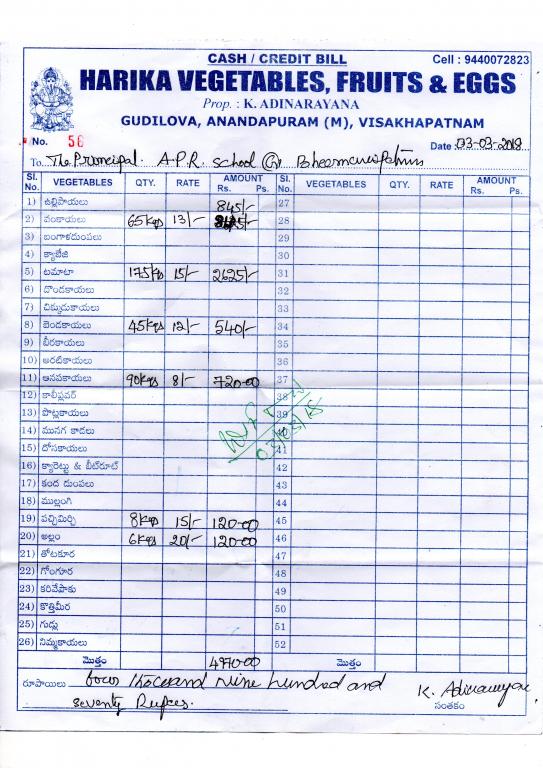 CASH / CREDIT BILL
Cell : 9440072823
HARIKA VEGETABLES, FRUITS & EGGS
Prop. : K. ADINARAYANA
GUDILOVA, ANANDAPURAM (M), VISAKHAPATNAM
No. 56
Date 03-03-2018
To The Principal. A.P.R. School
Sl. No. VEGETABLES QTY. RATE AMOUNT Rs. Ps. Sl. No. VEGETABLES QTY. RATE AMOUNT Rs. Ps.
1) ఉల్లిపాయలు 845/- 27
2) వంకాయలు 65kgs 13/- 28
3) బంగాళదుంపలు 29
4) క్యాబేజి 30
5) టమాటా 175kgs 15/- 2625/- 31
6) దొండకాయలు 32
7) చిక్కుడుకాయలు 33
8) బెండకాయలు 45kgs 12/- 540/- 34
9) బీరకాయలు 35
10) అరటికాయలు 36
11) ఆనపకాయలు 90kgs 8/- 720-00 37
12) కాలీఫ్లవర్ 38
13) పొట్లకాయలు 39
14) మునగ కాడలు 40
15) దోసకాయలు 41
16) క్యారెట్లు & బీట్‌రూట్ 42
17) కంద దుంపలు 43
18) ముల్లంగి 44
19) పచ్చిమిర్చి 8kgs 15/- 120-00 45
20) అల్లం 6kgs 20/- 120-00 46
21) తోటకూర 47
22) గోంగూర 48
23) కరివేపాకు 49
24) కొత్తిమీర 50
25) గుడ్లు 51
26) నిమ్మకాయలు 52
మొత్తం 4970-00 మొత్తం
03/03/18
రూపాయిలు four thousand nine hundred and
seventy Rupees.
K. Adinarayana
సంతకం